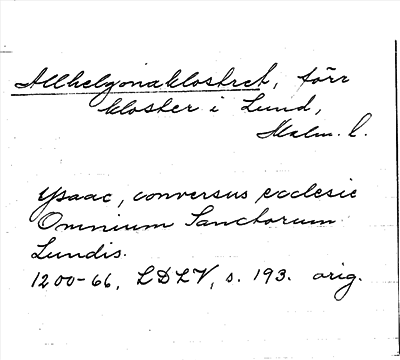 Allhelgonaklostret, förr
kloster i Lund,
Malm. l.
Ysaac, conversus ecclesie
Omnium Sanctorum
Lundis.
1200-66, LDLV, s. 193. orig.